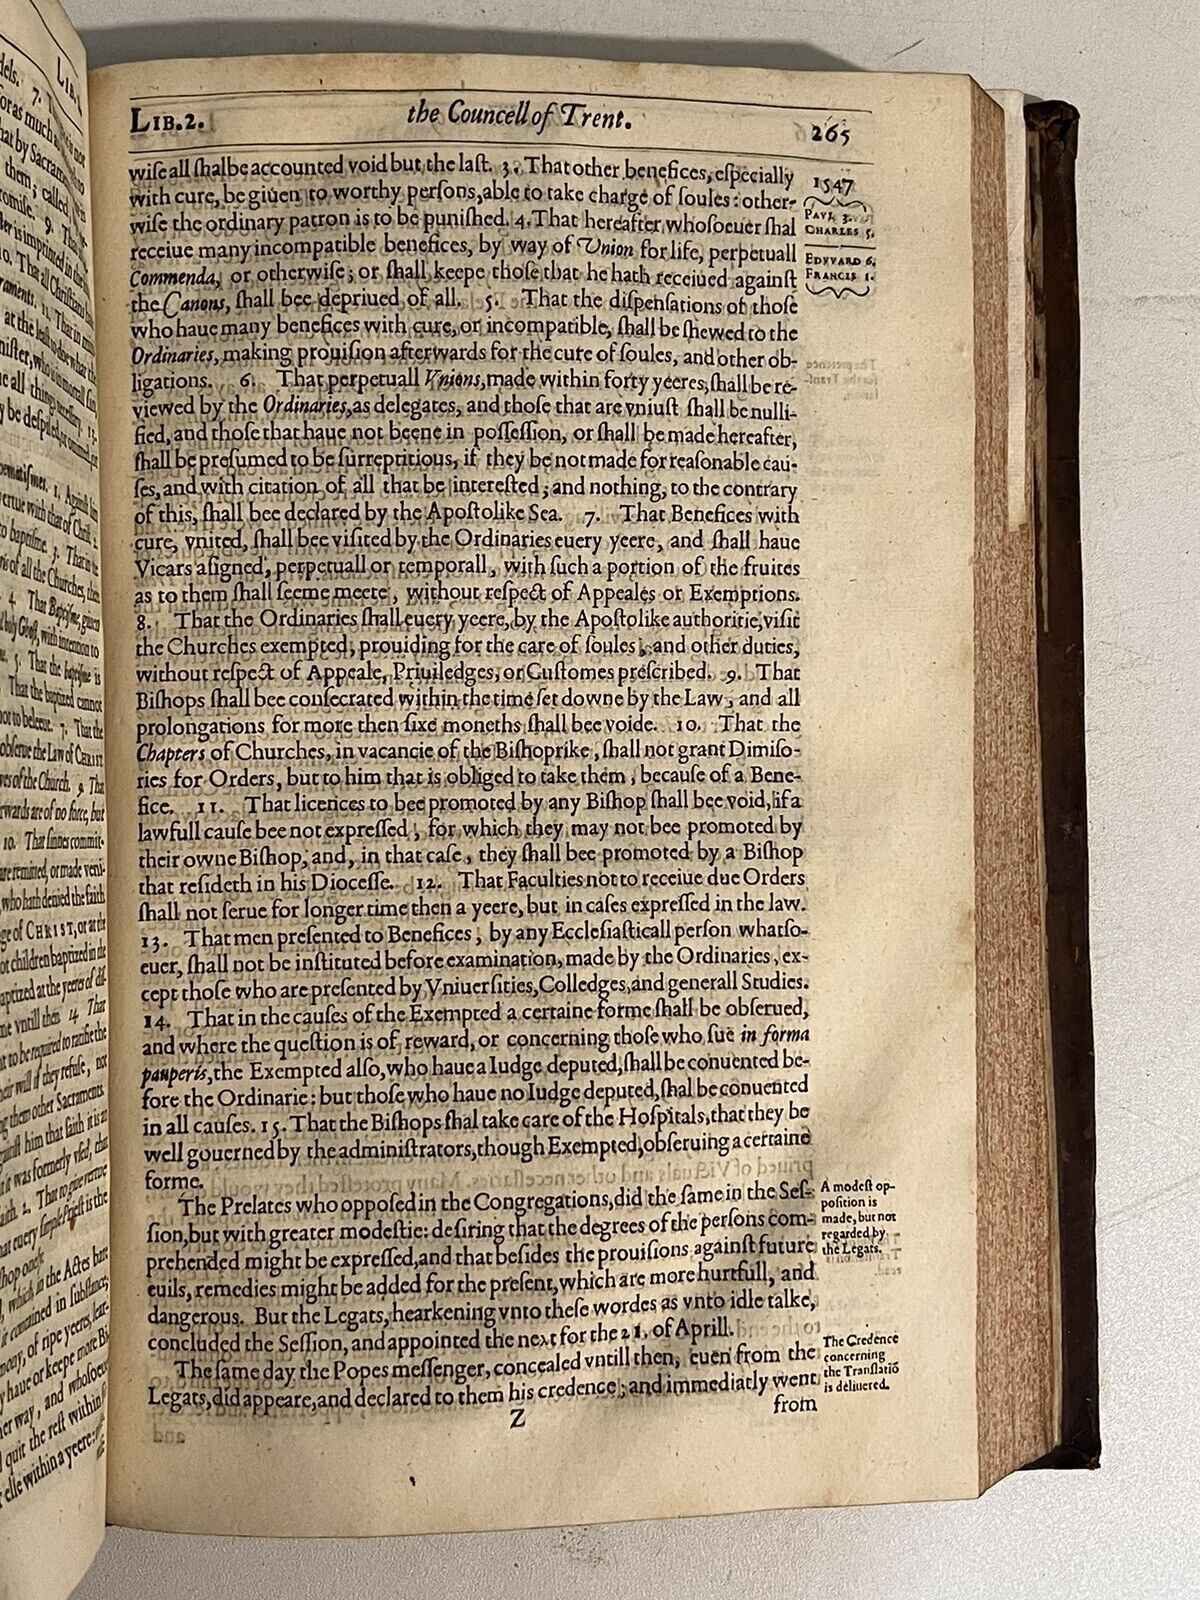 LIB.2. the Councell of Trent. 265
wiſe all ſhalbe accounted void but the laſt. 3. That other benefices, eſpecially
with cure, be giuen to worthy perſons, able to take charge of ſoules: other-
wiſe the ordinary patron is to be puniſhed. 4. That hereafter whoſoeuer ſhal
receiue many incompatible benefices, by way of Vnion for life, perpetuall
Commenda, or otherwiſe; or ſhall keepe thoſe that he hath receiued againſt
the Canons, ſhall bee depriued of all. 5. That the diſpenſations of thoſe
who haue many benefices with cure, or incompatible, ſhall be ſhewed to the
Ordinaries, making prouiſion afterwards for the cure of ſoules, and other ob-
ligations. 6. That perpetuall Vnions, made within forty yeeres, ſhall be re-
viewed by the Ordinaries, as delegates, and thoſe that are vniuſt ſhall be nulli-
fied, and thoſe that haue not beene in poſſeſſion, or ſhall be made hereafter,
ſhall be preſumed to be ſurreptitious, if they be not made for reaſonable cau-
ſes, and with citation of all that be intereſted; and nothing, to the contrary
of this, ſhall bee declared by the Apoſtolike Sea. 7. That Benefices with
cure, vnited, ſhall bee viſited by the Ordinaries euery yeere, and ſhall haue
Vicars aſigned, perpetuall or temporall, with ſuch a portion of the fruites
as to them ſhall ſeeme meete, without reſpect of Appeales or Exemptions.
8. That the Ordinaries ſhall euery yeere, by the Apoſtolike authoritie, viſit
the Churches exempted, prouiding for the care of ſoules, and other duties,
without reſpect of Appeale, Priuiledges, or Cuſtomes preſcribed. 9. That
Biſhops ſhall bee conſecrated within the time ſet downe by the Law, and all
prolongations for more then ſixe moneths ſhall bee voide. 10. That the
Chapters of Churches, in vacancie of the Biſhoprike, ſhall not grant Dimiſo-
ries for Orders, but to him that is obliged to take them, becauſe of a Bene-
fice. 11. That licences to bee promoted by any Biſhop ſhall bee void, if a
lawfull cauſe bee not expreſſed, for which they may not bee promoted by
their owne Biſhop, and, in that caſe, they ſhall bee promoted by a Biſhop
that reſideth in his Diocesſe. 12. That Faculties not to receiue due Orders
ſhall not ſerue for longer time then a yeere, but in caſes expreſſed in the law.
13. That men preſented to Benefices, by any Eccleſiaſticall perſon whatſo-
euer, ſhall not be inſtituted before examination, made by the Ordinaries, ex-
cept thoſe who are preſented by Vniuerſities, Colledges, and generall Studies.
14. That in the cauſes of the Exempted a certaine forme ſhall be obſerued,
and where the queſtion is of reward, or concerning thoſe who ſue in forma
pauperis, the Exempted alſo, who haue a Iudge deputed, ſhall be conuented be-
fore the Ordinarie: but thoſe who haue no Iudge deputed, ſhal be conuented
in all cauſes. 15. That the Biſhops ſhal take care of the Hoſpitals, that they be
well gouerned by the adminiſtrators, though Exempted, obſeruing a certaine
forme.
The Prelates who oppoſed in the Congregations, did the ſame in the Seſ-
ſion, but with greater modeſtie: deſiring that the degrees of the perſons com-
prehended might be expreſſed, and that beſides the prouiſions againſt future
euils, remedies might be added for the preſent, which are more hurtfull, and
dangerous. But the Legats, hearkening vnto theſe wordes as vnto idle talke,
concluded the Seſſion, and appointed the next for the 21. of Aprill.
The ſame day the Popes meſſenger, concealed vntill then, euen from the
Legats, did appeare, and declared to them his credence; and immediatly went
Z from
1547
PAVL 3.
CHARLES 5.
EDVVARD 6.
FRANCIS 1.
A modeſt op-
poſition is
made, but not
regarded by
the Legats.
The Credence
concerning
the Tranſlatiō
is deliuered.